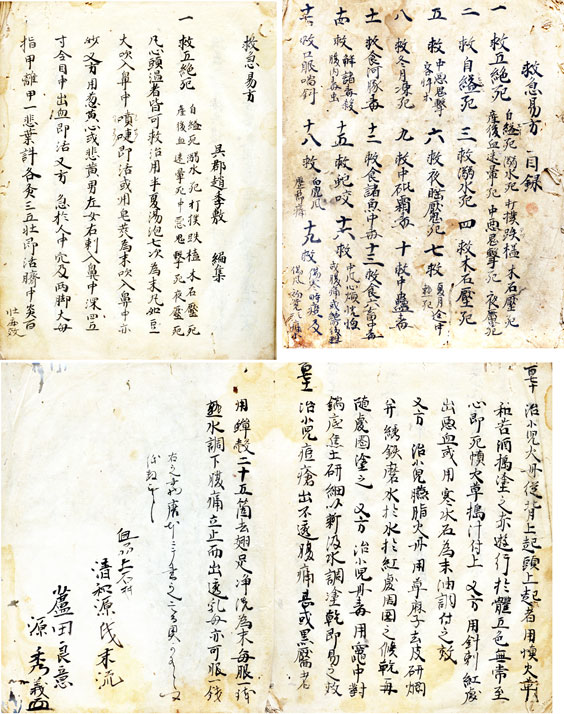 救急易方 目録
一 救五絶死 自縊死 溺水死 打撲跌磕 木石壓死
産後血迷暈死 中悪鬼擊死 夜魘死
二 救自縊死 三 救溺水死 四 救木石壓死
五 救中悪鬼擊客忤死 六 救夜睡魘死 七 救夏月途中熱死
八 救冬月凍死 九 救中砒霜毒 十 救中蠱毒
十一 救食河豚毒 十二 救食諸魚中毒 十三 救食六畜中毒
十四 救解諸毒殺腹内諸虫 十五 救蛇咬 十六 救
十八 救白虎風 十九 救傷寒時疫及
救急易方
吳郡趙季敷 編集
一 救五絶死 自縊死 溺水死 打撲跌磕 木石壓死
産後血迷暈死 中悪鬼擊死 夜魘死
凡心頭温者皆可救治用半夏湯泡七次為末丸如豆
大吹入鼻中噴嚏即活或用皂莢為末吹入鼻中亦
妙又方用葱黄心或韭黄男左女右刺入鼻中深四五
寸令目中出血即活又方 急於人中穴及两脚大母
指甲離甲一韭葉許各灸三五壮即活臍中灸百
壮亦效
治小児火丹従背上起頭上起者用慎火草
和苦酒搗塗之亦遊行於體五色無常至
心即死慎火草搗汁付上 又方用針刺紅處
出悪血或用寒水石為末油調付之效
又方 治小児臙脂火丹用蓖麻子去皮研爛
并綉鉄磨水於水於紅處周囲之候乾毎
随處圍塗之 又方 治小児丹毒用竈中對
鍋底焦土研細以新汲水調塗乾即易之效
治小児痘瘡出不透腹痛甚或黒靨者
用蝉殻二十五箇去翅足浄洗為末毎服一錢
熱水調下腹痛立止而出透乳母亦可服一錢
清和源氏末流
蘆田良意
源秀義